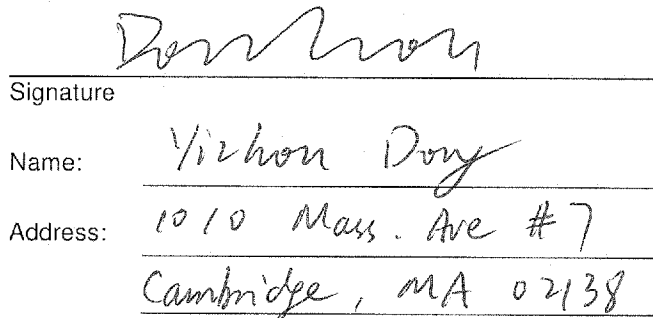 Signature
Name: Yizhou Dong
Address: 1010 Mass. Ave #7
Cambridge, MA 02138